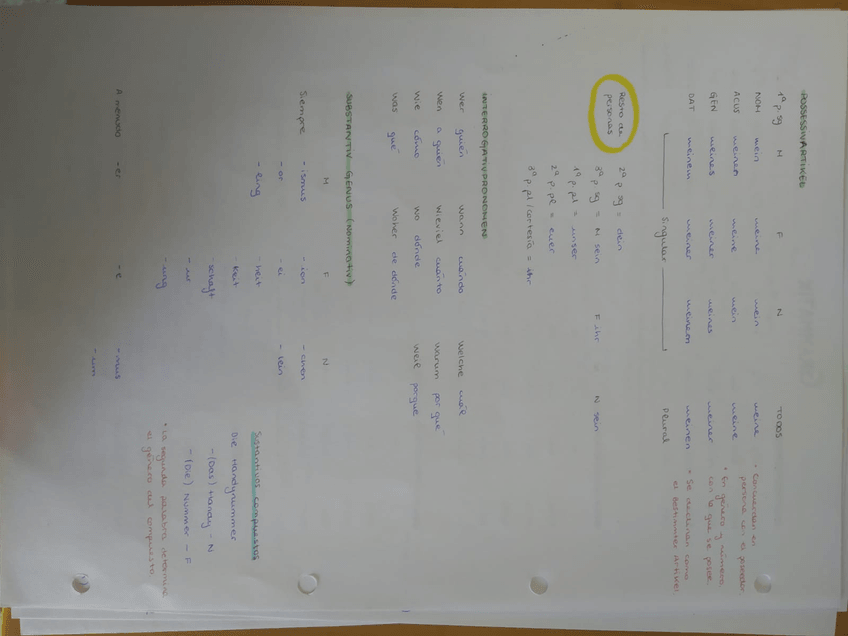 POSSESSIVARTIKEL
1ª p sg M F N TODOS
NOM mein meine mein meine
ACUS meinen meine mein meine
GEN meines meiner meines meiner
DAT meinem meiner meinem meinen
Singular Plural
* Concuerdan en persona con el poseedor
* En género y número con lo que se posee
* Se declinan como el bestimmter Artikel
Resto de personas
2ª p sg = dein
3ª p sg = M sein F ihr N sein
1ª p pl = unser
2ª p pl = euer
3ª p pl / cortesía = ihr
INTERROGATIVPRONOMEN
Wer quién Wann cuándo Welche cuál
Wen a quién Wieviel cuánto Warum por qué
Wie cómo Wo dónde Weil porque
Was qué Woher de dónde
SUBSTANTIV-GENUS (nominativ)
M F N
Siempre - ismus - ion - chen
- or - ei - lein
- ling - heit
- keit
- schaft
- ur
- ung
A menudo - er - e - nus
- um
Sustantivos compuestos
Die Handynummer
- (Das) Handy - N
- (Die) Nummer - F
* La segunda palabra determina el género del compuesto